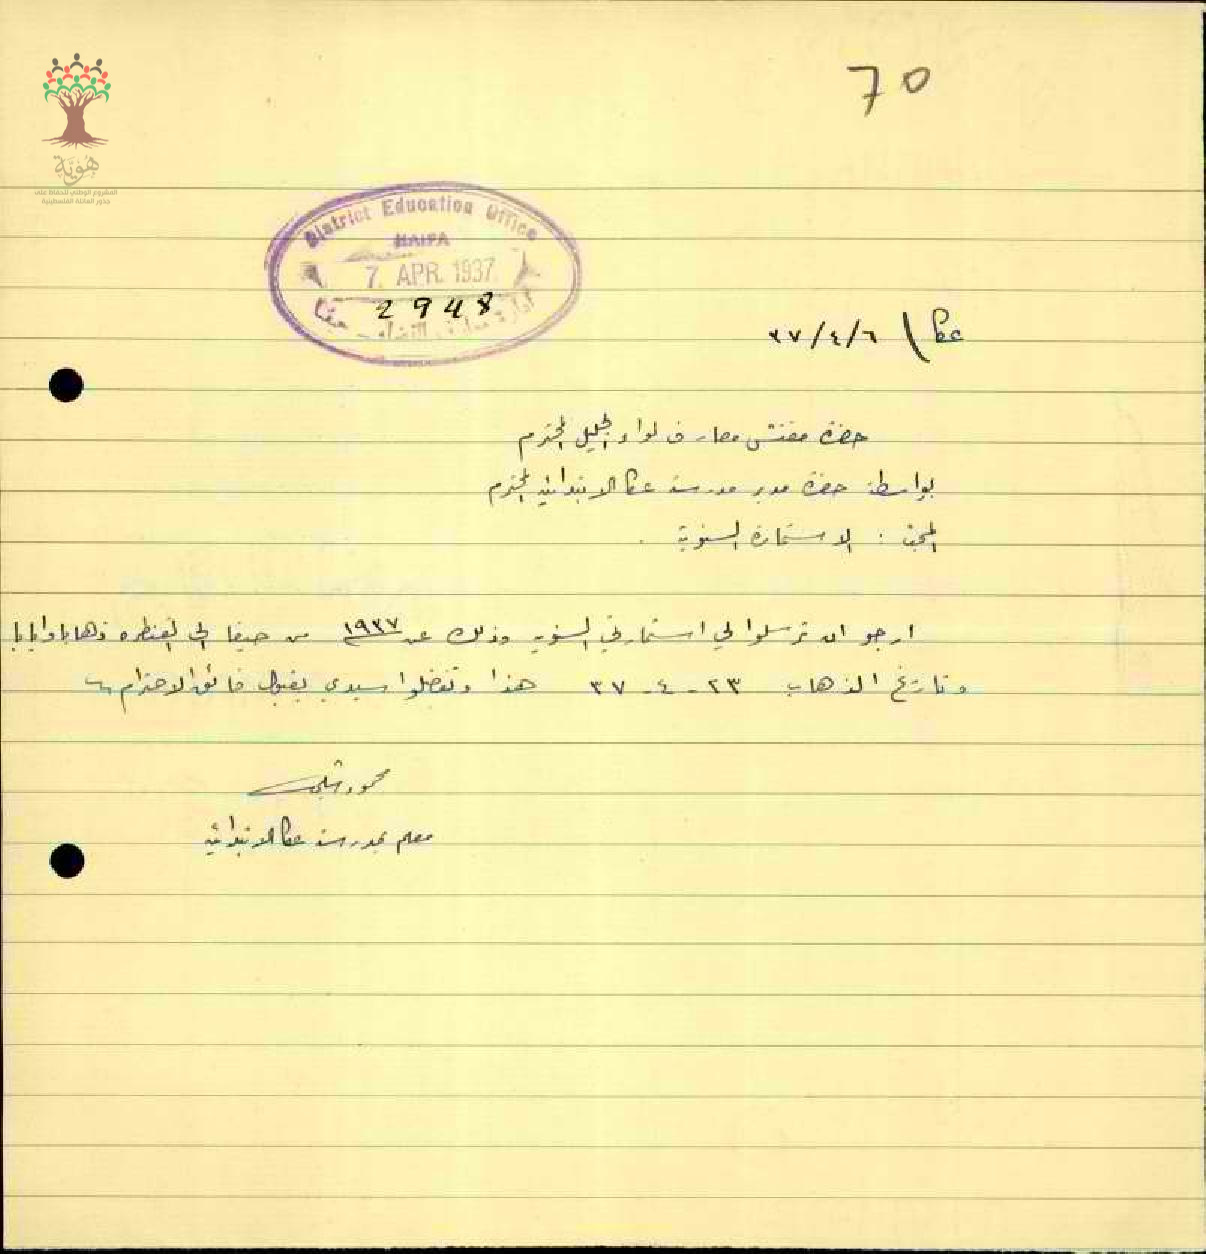 70
هوية
المشروع الوطني للحفاظ على
جذور العائلة الفلسطينية
District Education Office
HAIFA
7. APR. 1937
2948
حيفا
عكا / ٣٧/٤/٦
حضرة مفتش معارف لواء الجليل المحترم
بواسطة حضرة مدير مدرسة عكا الابتدائية المحترم
المبحث : الاستمارة السنوية .
ارجو ان ترسلوا لي استمارتي السنوية وذلك عن ١٩٣٧ من حيفا الى القنطره ذهابا وايابا
وتاريخ الذهاب ٢٣ - ٤ - ٣٧ هذا وتفضلوا سيدي بقبول فائق الاحترام
محمود
معلم بمدرسة عكا الابتدائية